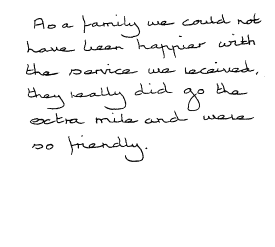 As a family we could not
have been happier with
the service we received,
they really did go the
extra mile and were
so friendly.